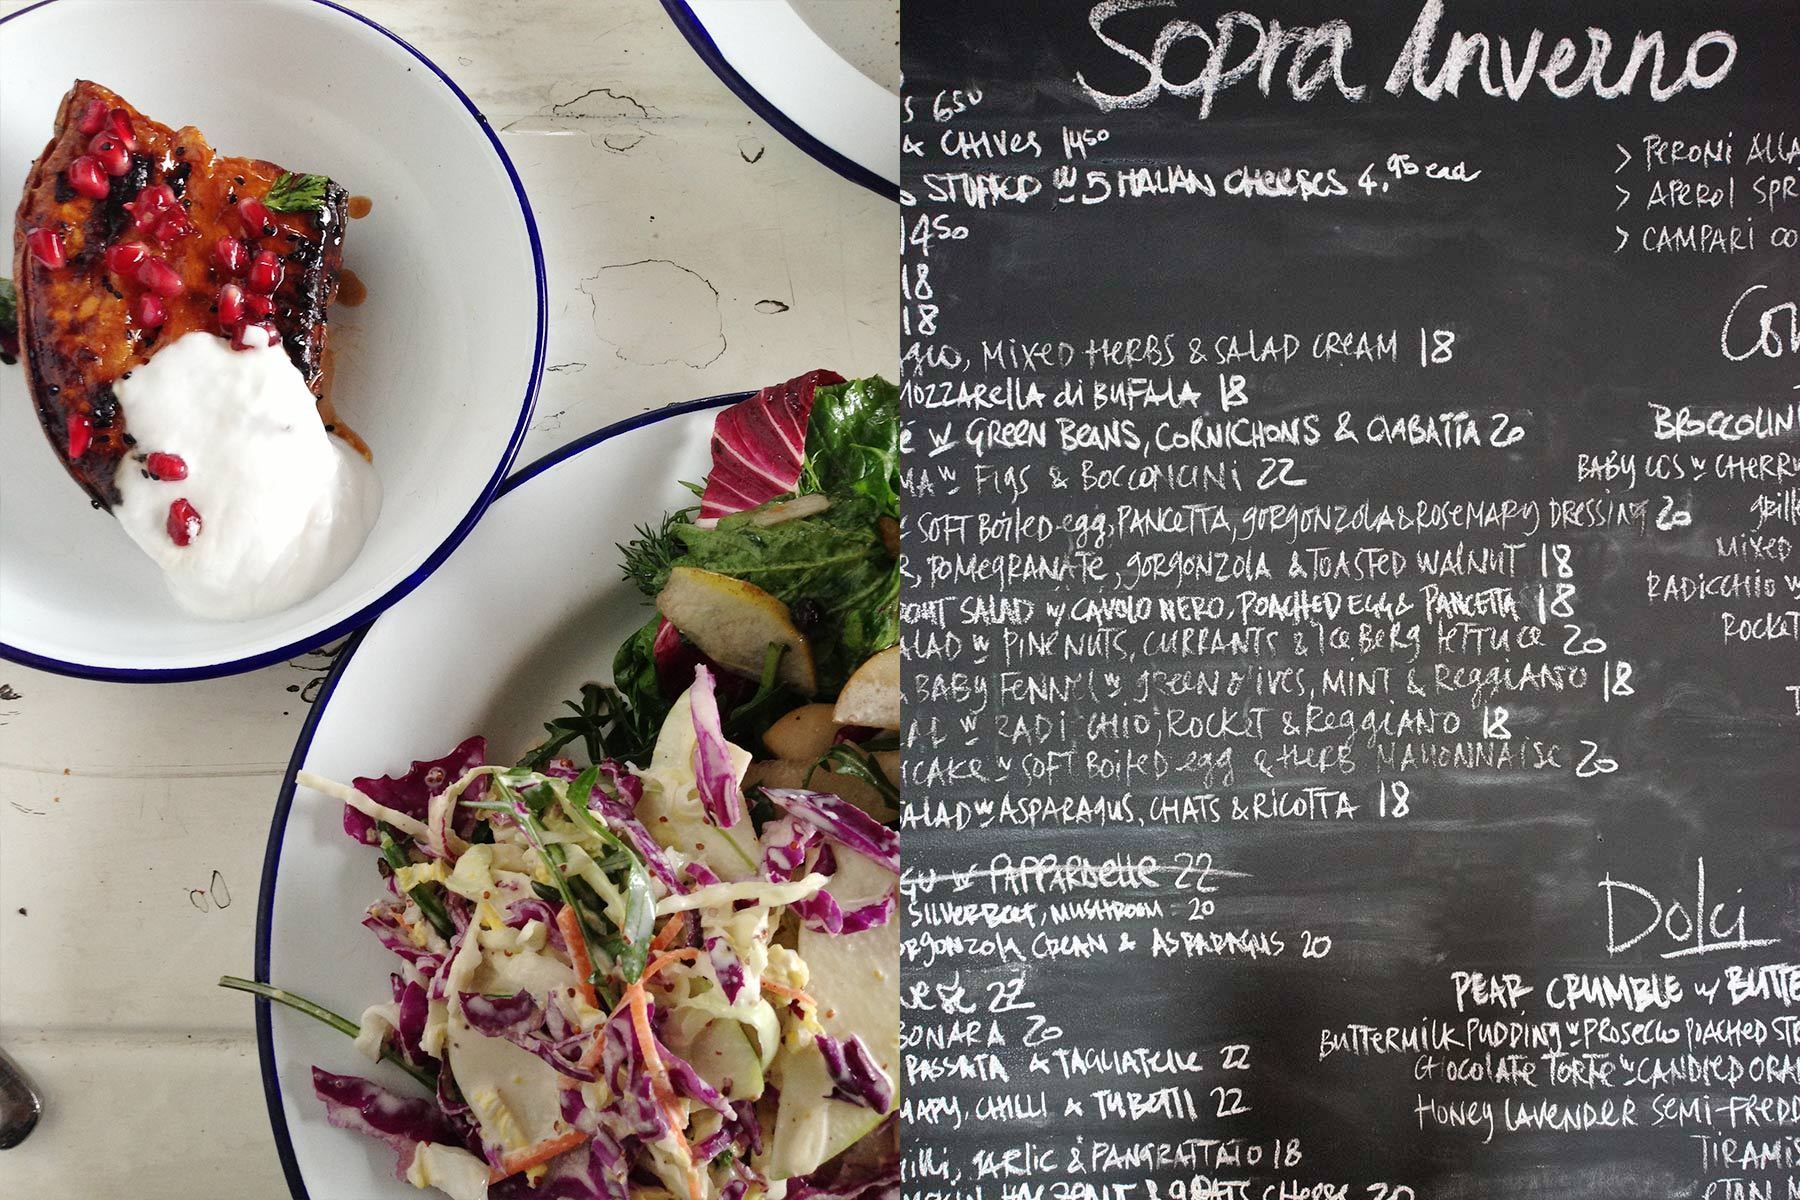 Sopra Inverno
S 650
& CHIVES 1450
STUFFED W 5 ITALIAN CHEESES 4.95 ead
1450
18
18
GIO, MIXED HERBS & SALAD CREAM 18
MOZZARELLA di BUFALA 18
É W GREEN BEANS, CORNICHONS & CIABATTA 20
MA W FIGS & BOCCONCINI 22
W SOFT BOILED EGG, PANCETTA, GORGONZOLA & ROSEMARY DRESSING 20
R, POMEGRANATE, GORGONZOLA & TOASTED WALNUT 18
OUT SALAD W/ CAVOLO NERO, POACHED EGG & PANCETTA 18
ALAD W PINENUTS, CURRANTS & ICEBERG LETTUCE 20
& BABY FENNEL W GREEN OLIVES, MINT & REGGIANO 18
AL W RADICCHIO, ROCKET & REGGIANO 18
CAKE W SOFT BOILED EGG & HERB MAYONNAISE 20
SALAD W ASPARAGUS, CHATS & RICOTTA 18
GU W PAPPARDELLE 22
SILVERBEET, MUSHROOM 20
ORGONZOLA CREAM & ASPARAGUS 20
NESE 22
BONARA 20
PASSATA & TAGLIATELLE 22
MARY, CHILLI & TUBETTI 22
illi, GARLIC & PANGRATTATO 18
MPKIN, HAZELNUT & GOATS CHEESE 20
> PERONI ALLA
> APEROL SPR
> CAMPARI CO
Con
BROCCOLINI
BABY COS W CHERRY
GRILLE
MIXED
RADICCHIO W
ROCKET
Dolci
PEAR CRUMBLE W/ BUTTE
BUTTERMILK PUDDING W PROSECCO POACHED ST
CHOCOLATE TORTE W CANDIED ORA
HONEY LAVENDER SEMI-FREDD
TIRAMIS